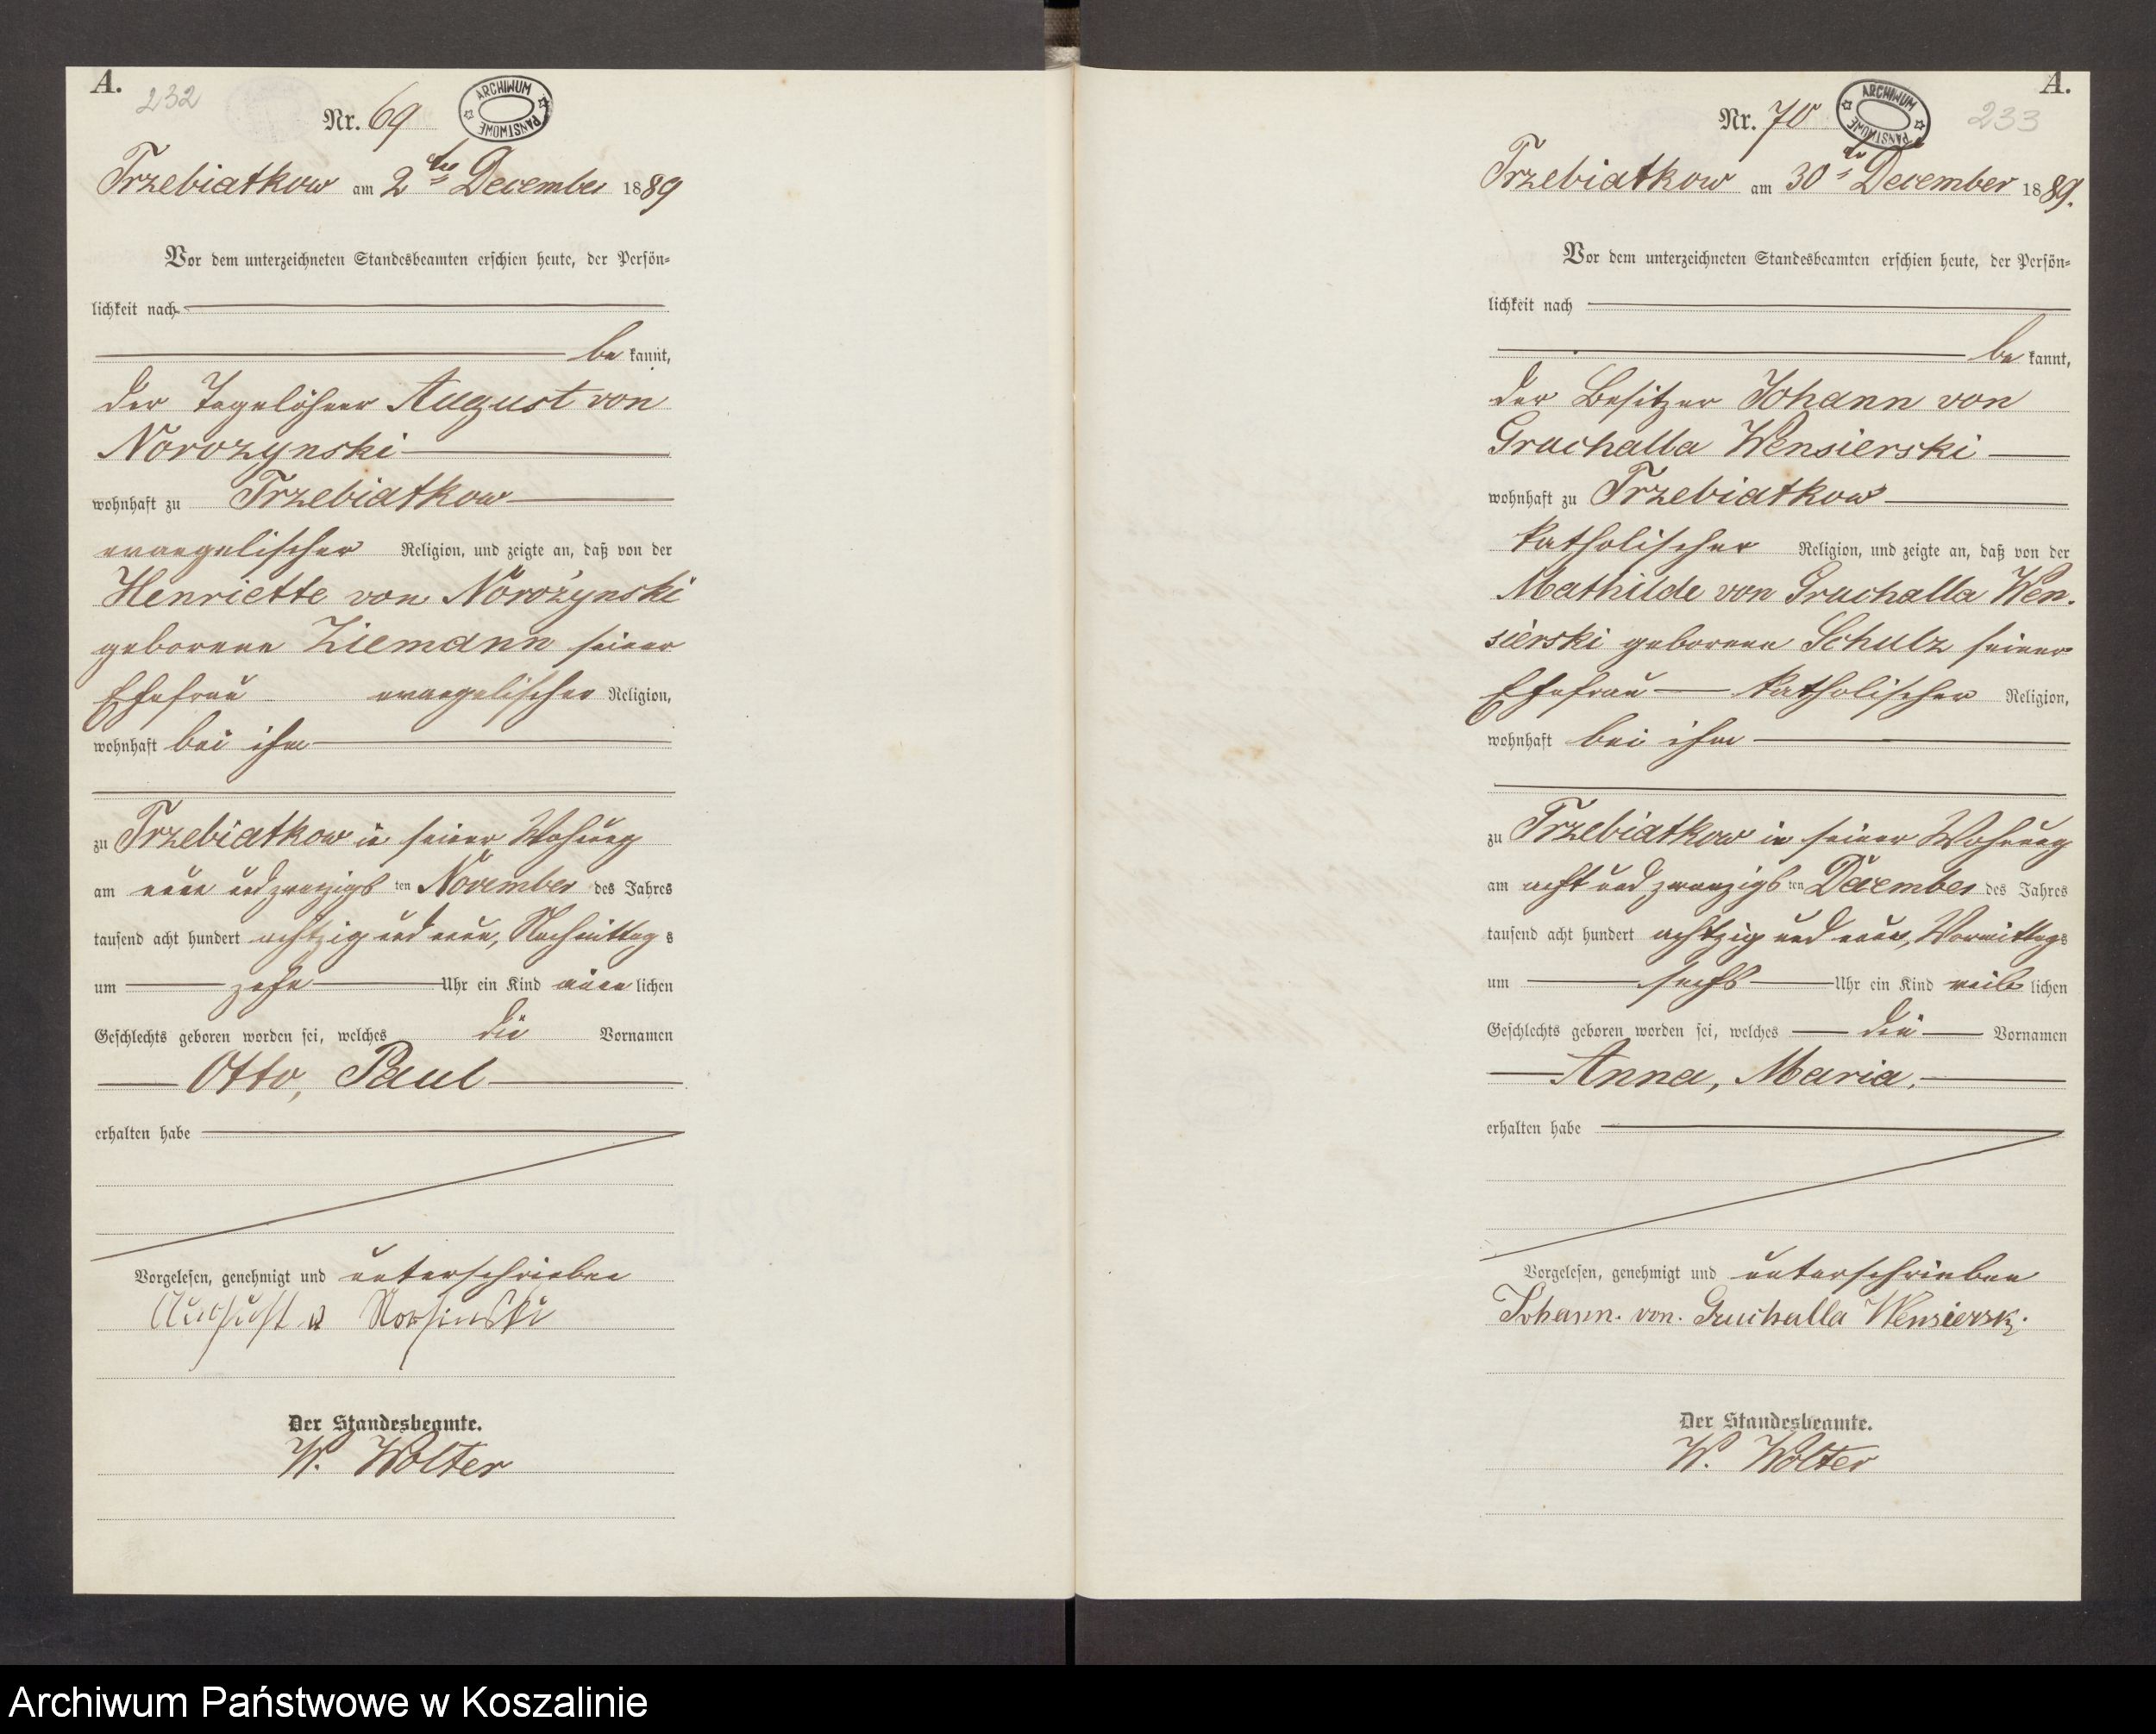 A.
232
Nr. 69
ARCHIWUM PAŃSTWOWE
Trzebiatkow am 2ten December 1889
Vor dem unterzeichneten Standesbeamten erschien heute, der Persön=
lichkeit nach
be kannt,
der Tagelöhner August von
Norozynski
wohnhaft zu Trzebiatkow
evangelischer Religion, und zeigte an, daß von der
Henriette von Norozynski
geborene Ziemann seiner
Ehefrau evangelischer Religion,
wohnhaft bei ihm
zu Trzebiatkow in seiner Wohnung
am neun und zwanzigs ten November des Jahres
tausend acht hundert achtzig und neun, Nachmittag s
um zehn Uhr ein Kind männ lichen
Geschlechts geboren worden sei, welches die Vornamen
Otto, Paul
erhalten habe
Vorgelesen, genehmigt und unterschrieben
August v
Der Standesbeamte.
W. Wolter
A.
Nr. 70
ARCHIWUM PAŃSTWOWE
233
Trzebiatkow am 30ten December 1889.
Vor dem unterzeichneten Standesbeamten erschien heute, der Persön=
lichkeit nach
be kannt,
der Besitzer Johann von
Gruchalla Wensierski
wohnhaft zu Trzebiatkow
katholischer Religion, und zeigte an, daß von der
Mathilde von Gruchalla Wen-
sierski geborenen Schulz seiner
Ehefrau katholischer Religion,
wohnhaft bei ihm
zu Trzebiatkow in seiner Wohnung
am acht und zwanzigs ten December des Jahres
tausend acht hundert achtzig und neun, Vormittags
um sechs Uhr ein Kind weib lichen
Geschlechts geboren worden sei, welches die Vornamen
Anna, Maria,
erhalten habe
Vorgelesen, genehmigt und unterschrieben
Johann. von. Gruchalla Wensierski.
Der Standesbeamte.
W. Wolter
Archiwum Państwowe w Koszalinie